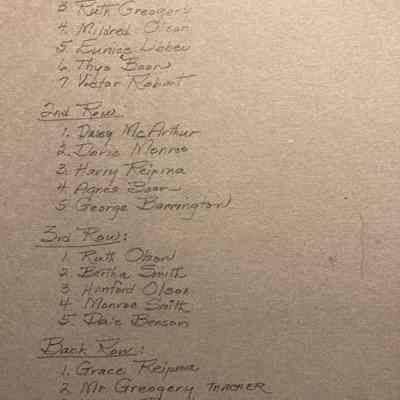 3. Ruth Greogery
4. Mildred Olson
5. Eunice Libbey
6. Thys Boor
7. Victor Robart
2nd Row:
1. Daisy McArthur
2. Doris Monroe
3. Harry Reipma
4. Agnes Boor
5. George Barrington
3rd Row:
1. Ruth Olson
2. Bertha Smith
3 Hanford Olson
4 Monroe Smith
5. Dale Benson
Back Row:
1. Grace Reipma
2 Mr. Greogery TEACHER